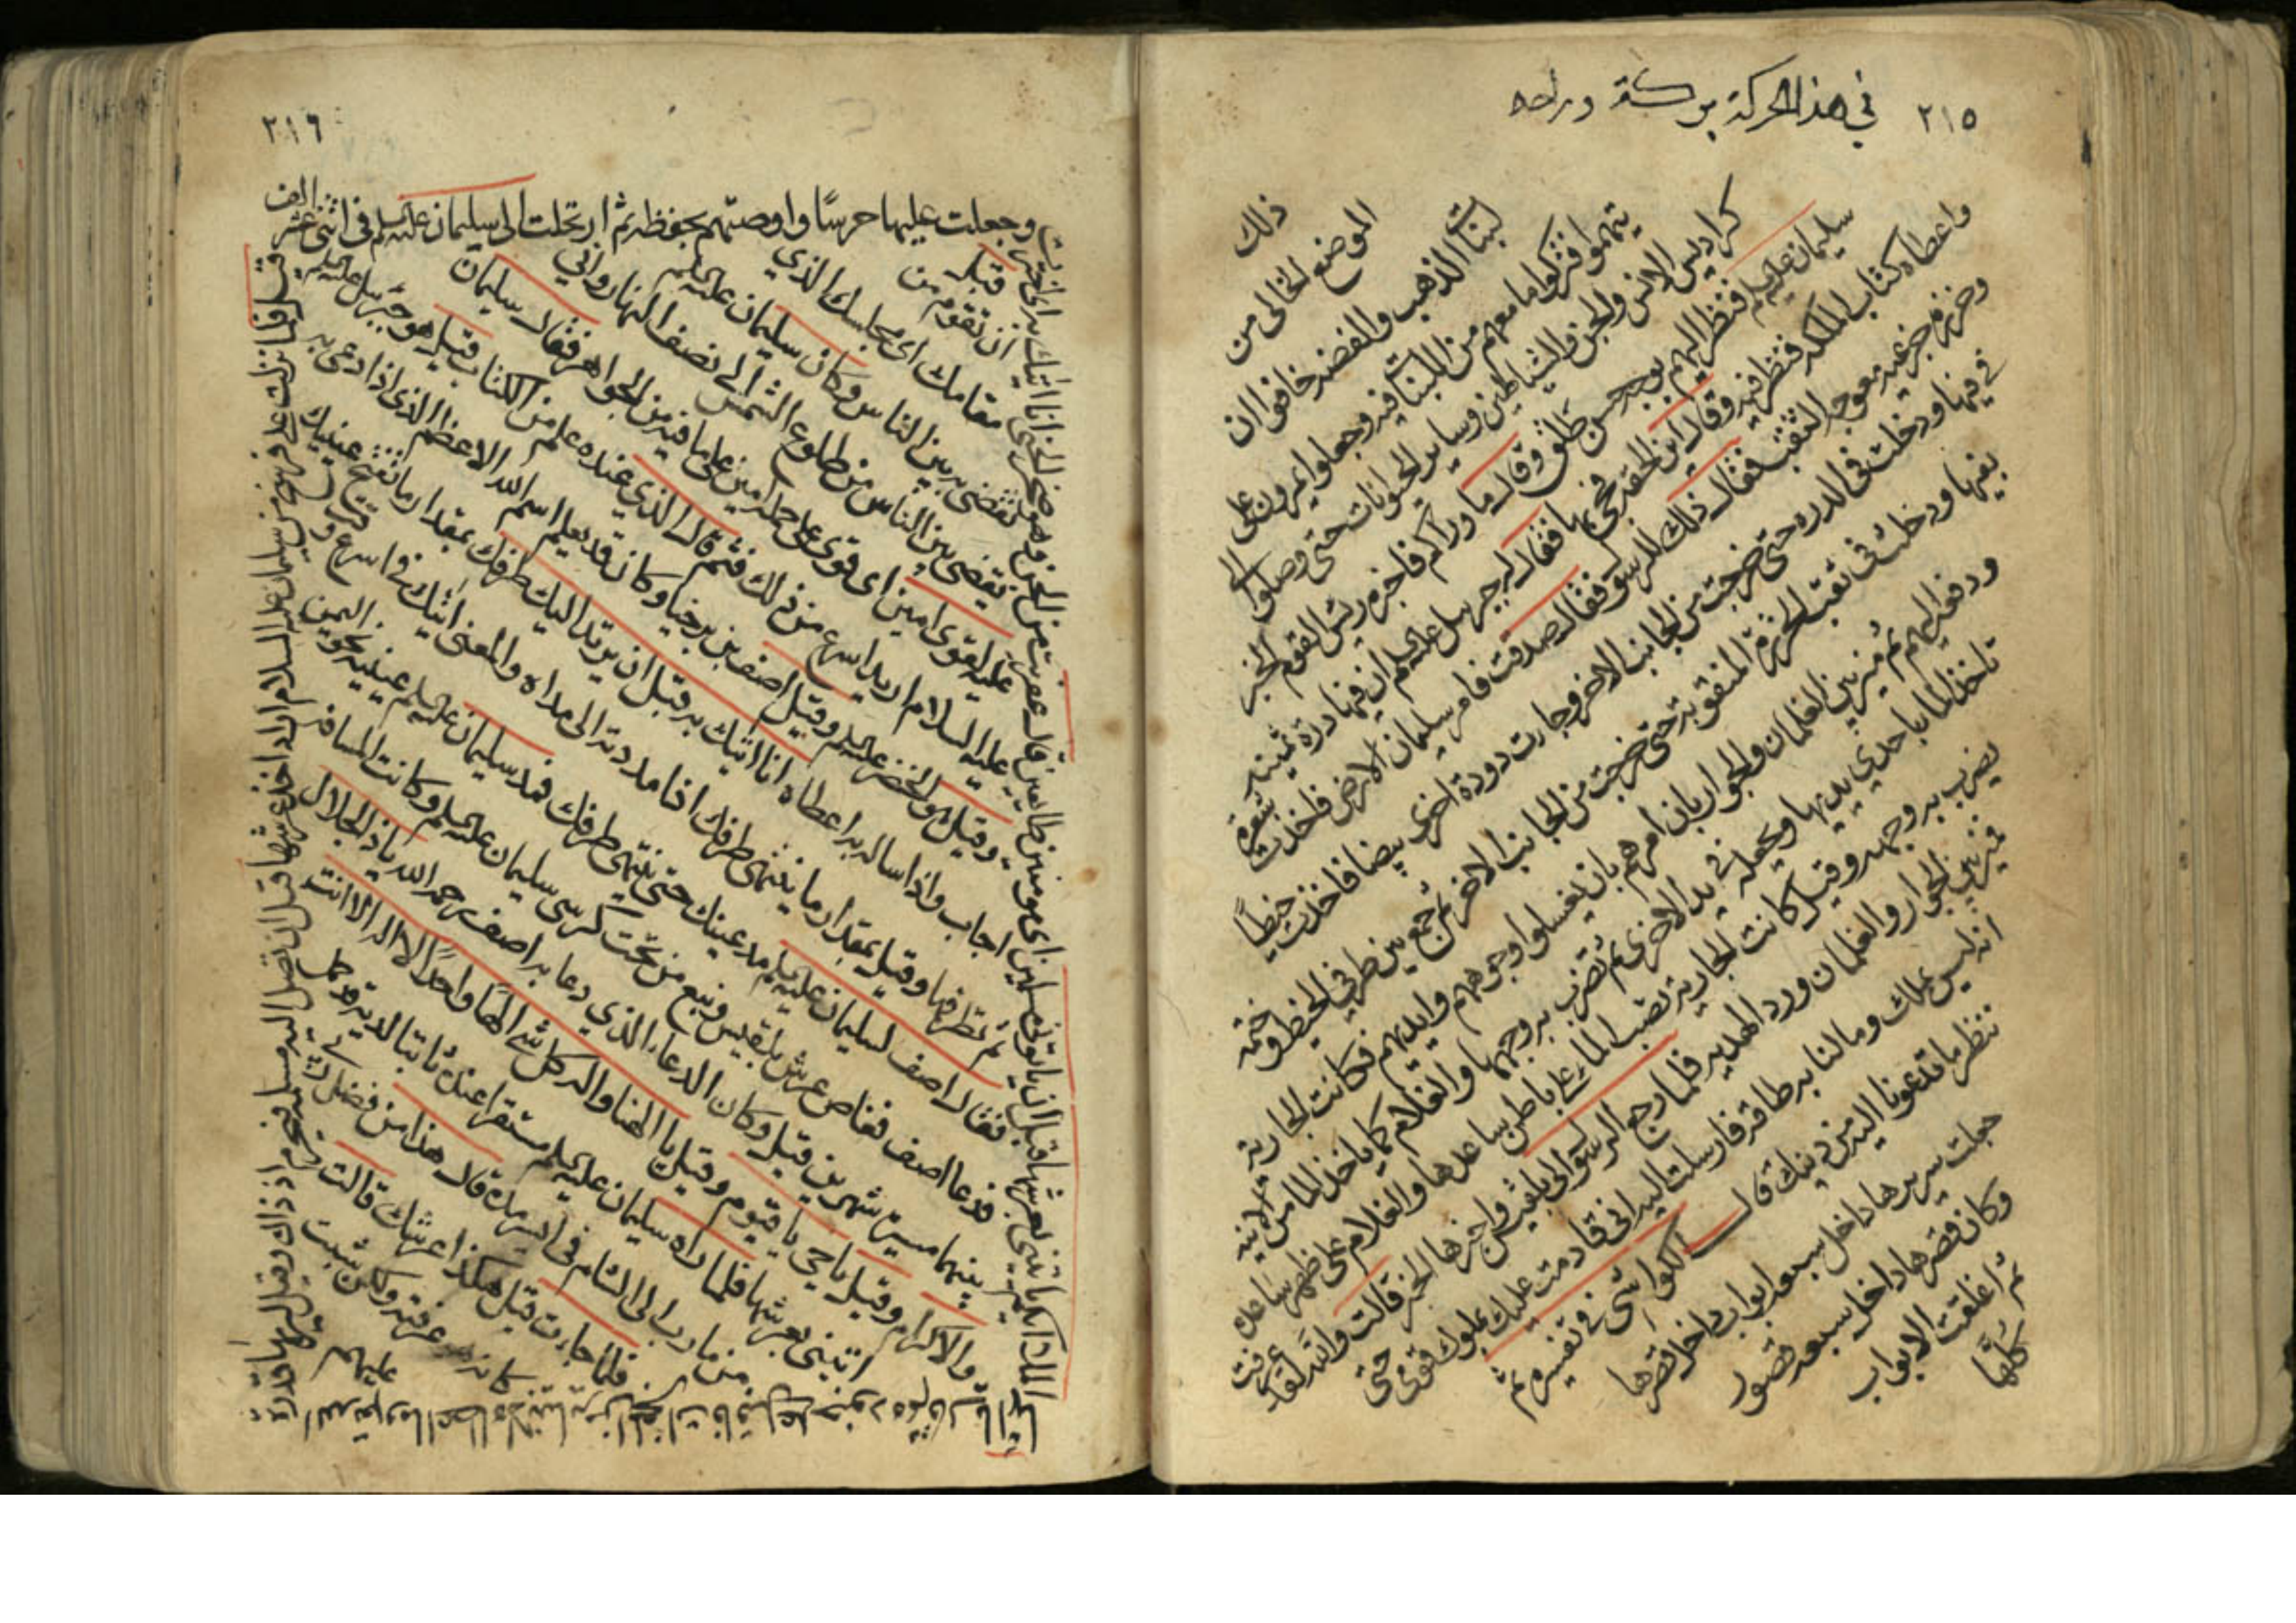 ٢١٥ في هذا الحركة بركة وراحه
ذلك
الموضع الخالي من
لبنات الذهب والفضة خافوا ان
يتهموا فتركوا ما معهم من اللبنات فيه وجعلوا يمرون على
كراديس الانس والجن والشياطين وساير الحيوانات حتى وصلوا الى
سليمان عليه السلم فنظر اليهم بوجه حسن طلق وقال ما وراكم فاخبره رئيس القوم الخبر
واعطاه كتاب الملكة فنظر فيه وقال اين الحقة فجئ بها فقال له جبريل عليه السلم ان فيها درة ثمينة
وخرزة جزعية معوجة الثقب فقال ذلك للرسول فقال صدقت فامر سليمان الارضة فاخذت شعرة
في فيها ودخلت في الدرة حتى خرجت من الجانب الاخر وجات دودة اخرى بيضا فاخذت خيطًا
بفيها ودخلت في ثقب الخرزة المثقوبة حتى خرجت من الجانب الاخر ثم جمع بين طرفي الخيط وختمه
ودفعه اليهم ثم ميز بين الغلمان والجوار بان امرهم بان يغسلوا وجوههم وايديهم فكانت الجارية
تاخذ الما باحدى يديها وتجعله في يدها الاخرى ثم تضرب به وجهها والغلام كما ياخذ الما من الانية
يضرب به وجهه وقيل كانت الجارية تصب الما على باطن ساعدها والغلام على ظهر ساعده
فميز بين الجوار والغلمان ورد الهدية فلما رجع الرسول الى بلقيس واخبرها الخبر قالت والله لقد عرفت
انه ليس بملك وما لنا به طاقة فارسلت اليه اني قادمت عليك بملوك قومي حتى
ننظر ما تدعونا اليه من دينك قال الكواشي في تفسيره ثم
جعلت سريرها داخل سبعة ابواب داخل قصرها
وكان قصرها داخل سبعة قصور
ثم اغلقت الابواب
كلها
٢١٦
وجعلت عليها حرسًا واوصتهم بحفظه ثم ارتحلت الى سليمان عليه السلم في اثني عشر الف
قيل فلما نزلت على فرسخ من سليمان عليه السلام اراد اخذ عرشها قبل ان تصل اليه مسلمة فيحرم اذ ذاك وقيل ليريها قدرة
الله عز وجل وما اعطاه لانبيائه من المعجزات فاقبل على جنوده
الملا ايكم ياتيني بعرشها قبل ان ياتوني مسلمين اي مومنين طائعين قال عفريت من الجن وهو صخر الجني انا اتيك به
قبل
ان تقوم من
مقامك اي مجلسك الذي
تقضي به بين الناس وكان سليمان عليه السلم
يقضي بين الناس من طلوع الشمس الى نصف النهار واني
عليه لقوي امين اي قوي على حمله امين على ما فيه من الجواهر فقال سليمان
عليه السلام اريد اسرع من ذلك فثم قال الذي عنده علم من الكتاب قيل هو جبريل عليه السلم
وقيل هو الخضر عليه السلم وقيل اصف بن برخيا وكان قد يعلم اسم الله الاعظم الذي اذا دعي به
اجاب واذا سال به اعطاه انا اتيك به قبل ان يرتد اليك طرفك بمقدار ما تفتح عينيك
ثم تطرفها وقيل بمقدار ما ينتهي طرفك اذا مددته الى مداه والمعنى اتيك في اسرع وقت
فقال اصف لسليمان عليه السلم مد عينك حتى ينتهي طرفك فمد سليمان عليه السلم عينيه نحو اليمن
فدعا اصف فغاص عرش بلقيس ونبع من تحت كرسي سليمان عليه السلم وكانت المسافة
بينهما مسيرة شهرين قيل وكان الدعاء الذي دعا به اصف رحمه الله يا ذا الجلال
والاكرام وقيل يا حي يا قيوم وقيل يا الهنا واله كل شي الها واحدًا لا اله الا انت
اتيني بعرشها فلما راه سليمان عليه السلم مستقرا عنده ثابتا لديه
من مارب الى الشام في اسرع مدة قال هذا من فضل ربي
فلما جاءت قيل اهكذا عرشك قالت
كانه هو عرفته ولكن شبهت
عليهم